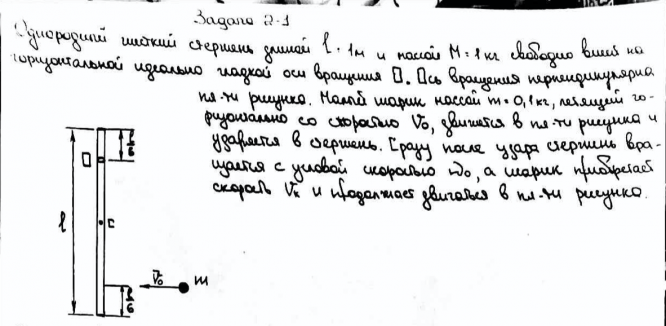 Задача 2-1
Однородный жесткий стержень длиной l = 1м и массой M = 1 кг свободно висит на
горизонтальной идеально гладкой оси вращения O. Ось вращения перпендикулярна
пл-ти рисунка. Малый шарик массой m = 0,1 кг, летящий го-
ризонтально со скоростью V₀, движется в пл-ти рисунка и
ударяется в стержень. Сразу после удара стержень вра-
щается с угловой скоростью ω₀, а шарик приобретает
скорость Vк и продолжает двигаться в пл-ти рисунка.
l/6
O
l
C
V₀ m
l/6